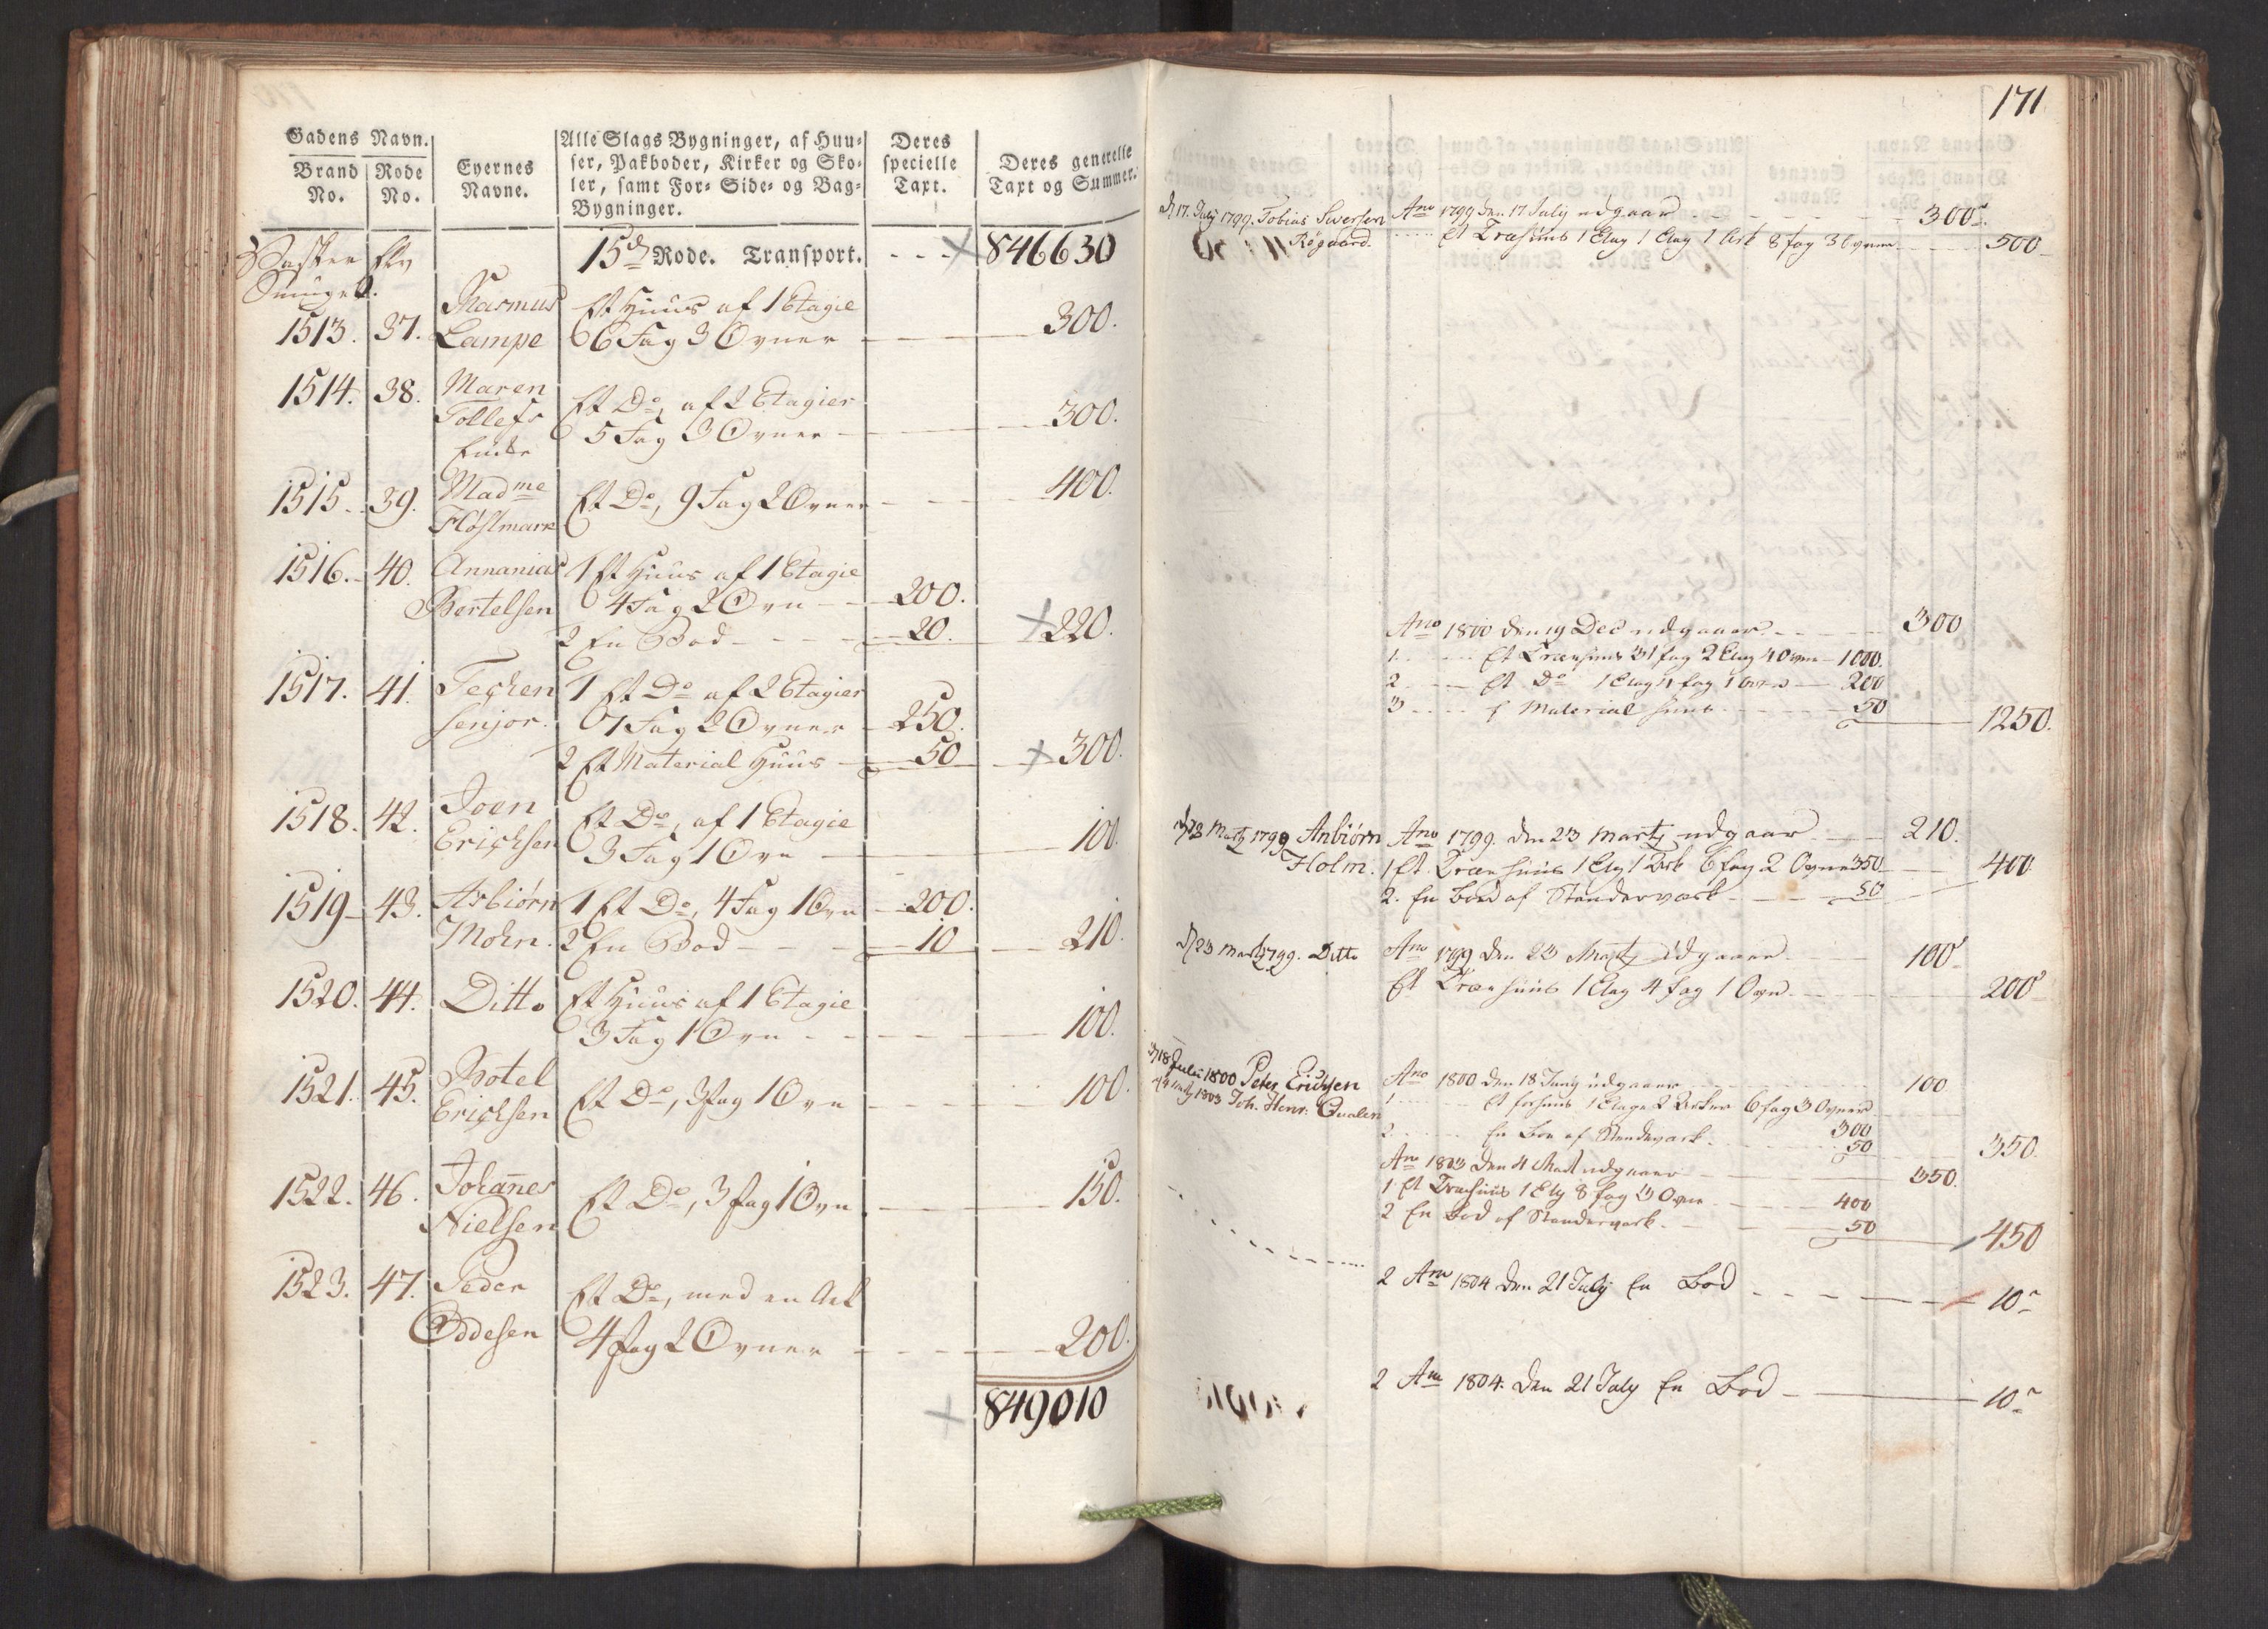 Gadens Navn.
Brand No. Rode No.
Eyernes Navne.
Alle Slags Bygninger, af Huu-
ser, Pakboder, Kirker og Sko-
ler, samt For- Side- og Bag-
Bygninger.
Deres specielle Taxt.
Deres generelle Taxt og Summer.
15de Rode. Transport. 846630
Smuget.
1513. 37. Rasmus Et Huus af 1 Etagie
Lampe 6 Fag 3 Ovner 300.
1514. 38. Maren Et Do, af 2 Etagier
Tollefs 5 Fag 3 Ovner 300.
Enke
1515. 39. Madme Et Do, 9 Fag 2 Ovner 400.
1516. 40. Annanias 1 Et Huus af 1 Etagie
Bertelsen 4 Fag 2 Ovn 200.
2 En Bod 20. 220.
1517. 41. Techen 1 Et Do af 2 Etagier
senjor. 7 Fag 2 Ovner 250.
2 Et Material Huus 50 300.
1518. 42. Joen Et Do, af 1 Etagie
Erichsen 3 Fag 1 Ovn 100.
1519 43. Asbiørn 1 Et Do, 4 Fag 1 Ovn 200.
Mohn. 2 En Bod 10 210.
1520. 44. Ditto Et Huus af 1 Etagie
3 Fag 1 Ovn 100.
1521. 45. Botel Et Do, 3 Fag 1 Ovn 100.
Erichsen
1522. 46. Johannes Et Do, 3 fag 1 Ovn 150.
Nielsen
1523. 47. Peder Et Do, med en Ark
Oddesen 4 fag 2 Ovner 200.
849010
171
d 17. July 1799. Tobias Siversen Ano 1799 den 17 July udgaar 300
Røgaard. Et Træhuus 1 Etag 1 Ark 8 fag 3 Ovne 500
Ano 1800 den 19 Dec udgaaer 300
1 Et Træehuus 31 fag 2 Etag 4 Ovne 1000.
2 Et Do 1 Etag 4 fag 1 Ovn 200
3 1 Material huus 50 1250.
d 23 Marty 1799 Anbiørn Ano 1799. den 23 Marty udgaar 210.
Holm. 1 Et Træehuus 1 Etg 1 Ark 6 fag 2 Ovne 350 400
2. En Bod af Stenderværk 50
d 23 Marty 1799. Ditto Ano 1799 den 23 Marty udgaaer 100
Et Træehuus 1 Etag 4 fag 1 Ovn 200
d 18 Juli 1800 Peter Erichsen Ano 1800 den 18 Juny udgaaer 100
1803 Joh. Henr: Qualen 1 Et forhuus 1 Etage 2 Arker 6 fag 3 Ovner 300
2 En Boe af Stenderværk 50 350.
Ano 1803 den 4 Mart udgaaer 350.
1 Et Træehuus 1 Etg 8 fag 3 Ovne 400
2 En Bod af Stenderværk 50 450
2 Ano 1804 den 21 July En Bod 10
2 Ano 1804. den 21 July En Bod 10